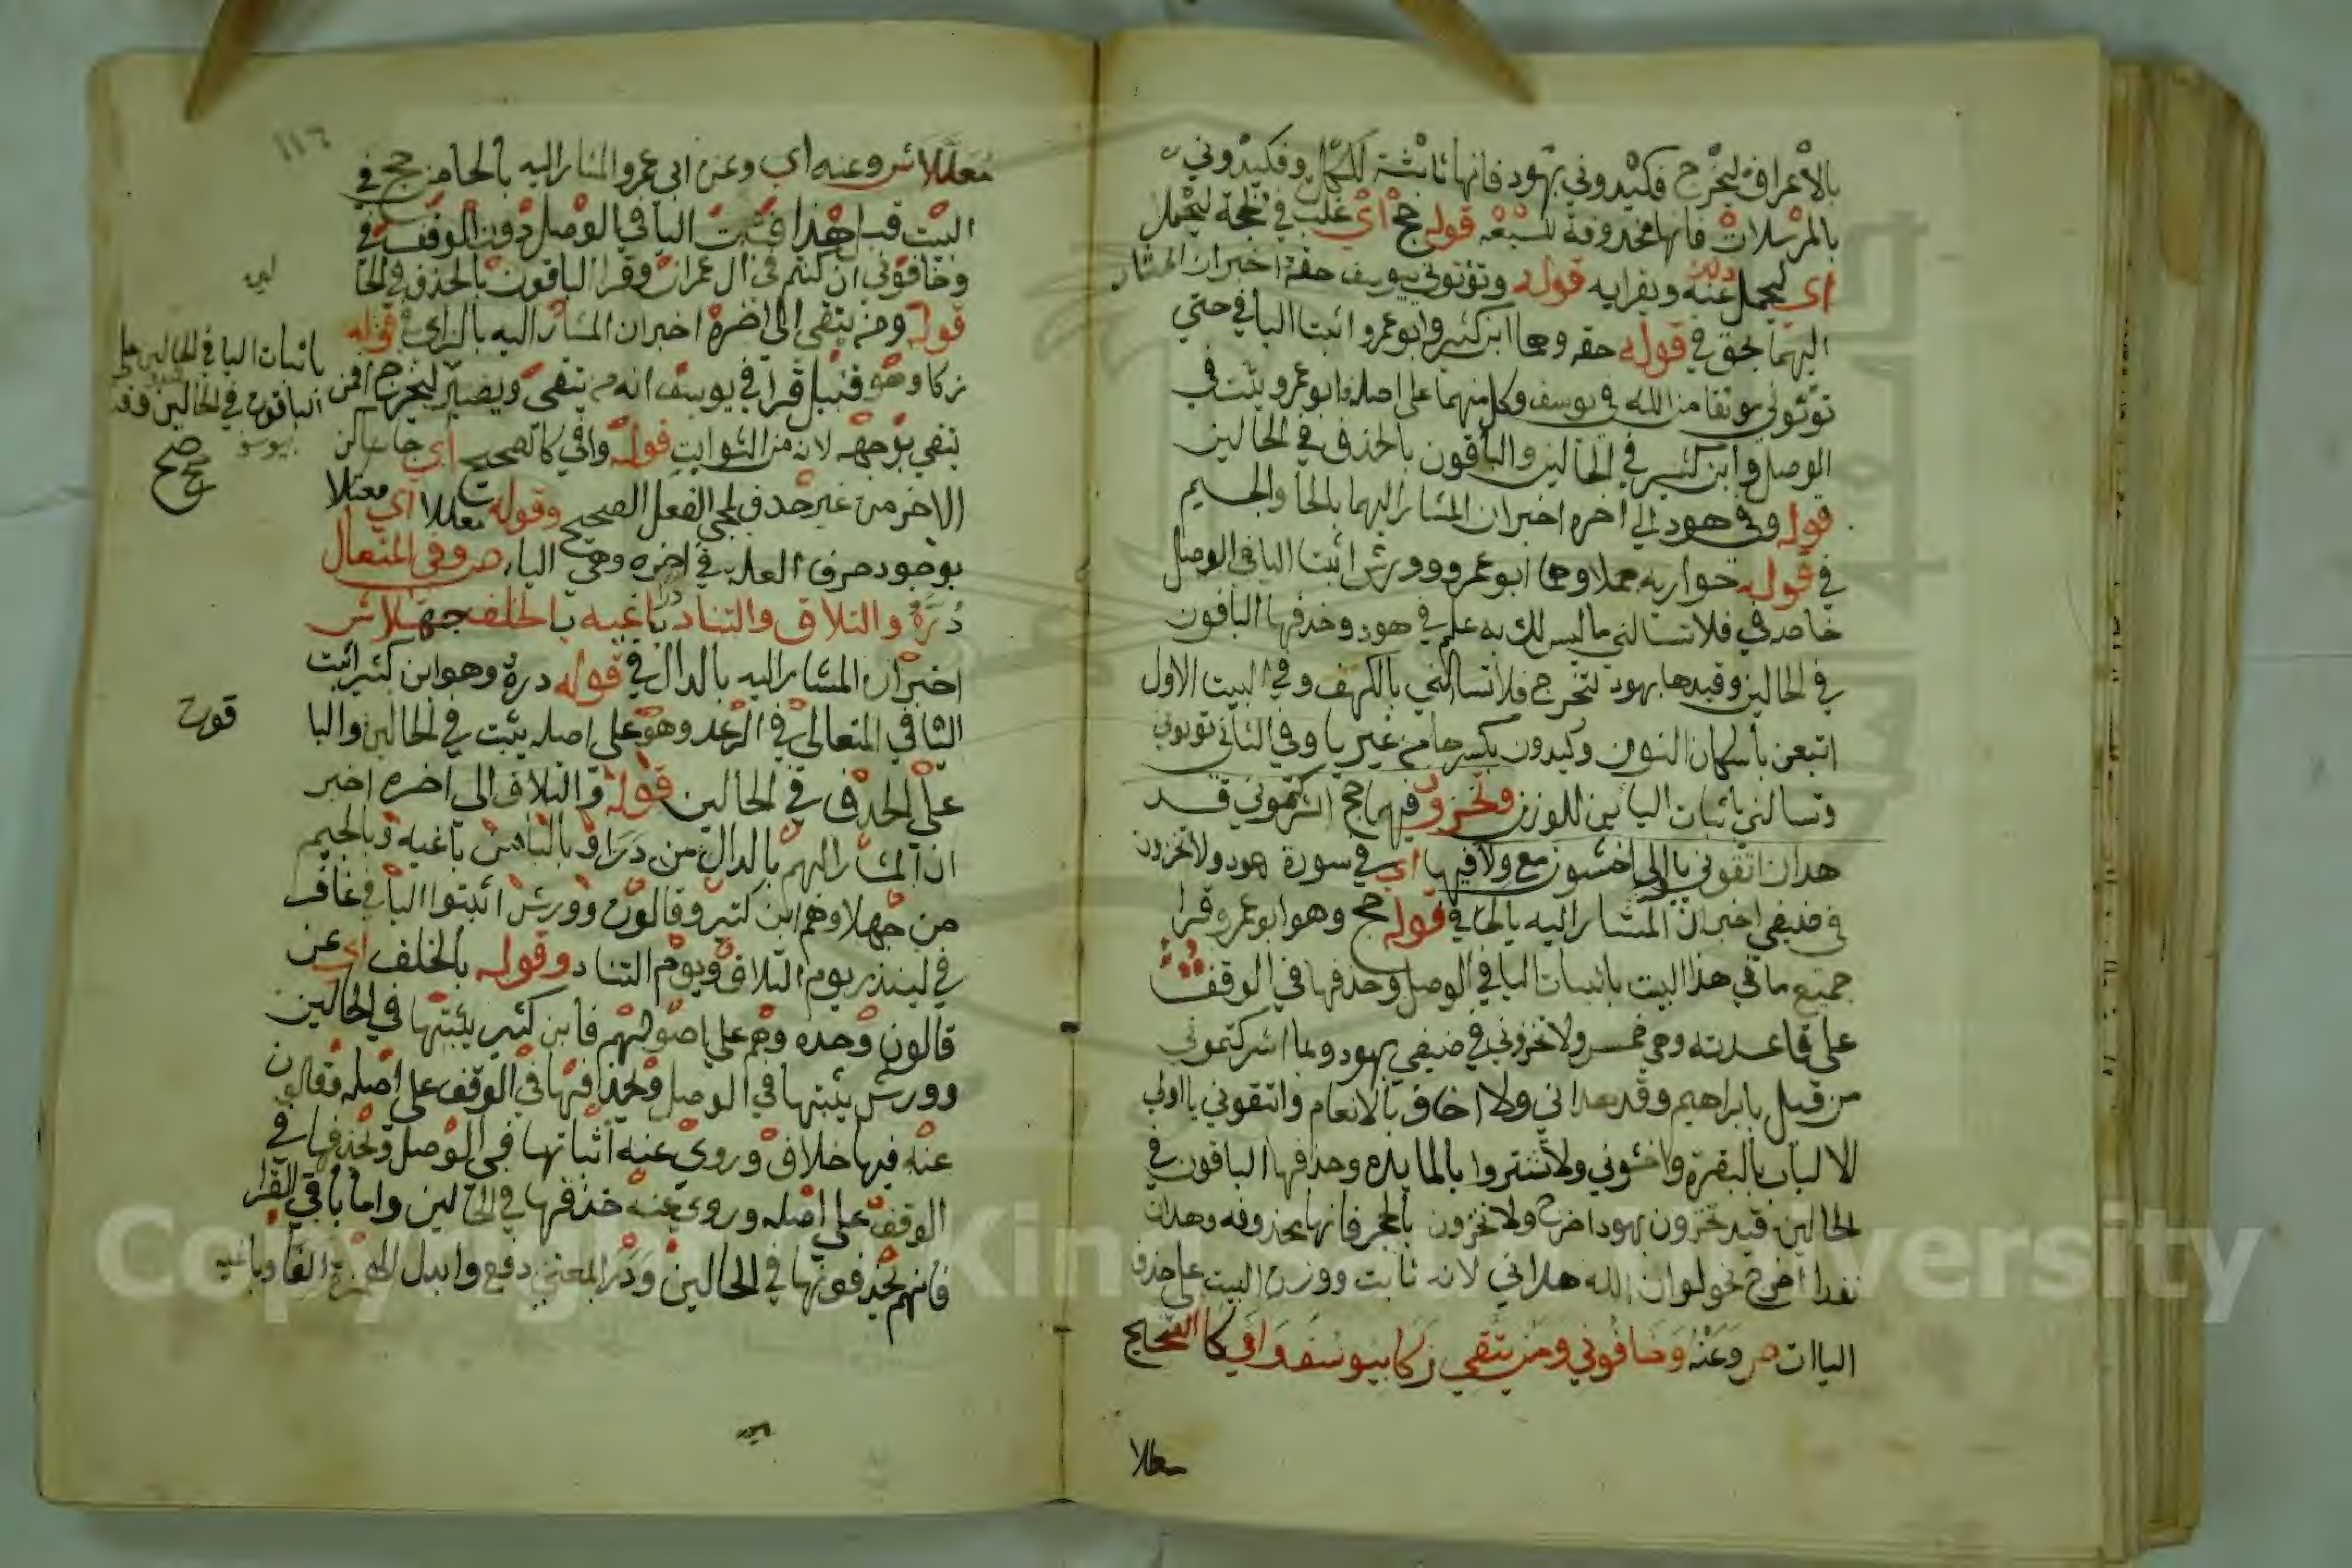 بالاعراف ليخرج فكيدوني بهود فانها ثابتة للكل وفكيدوني
بالمرسلات فانها محذوفة للسبعه قوله حج اي غلب في الحجة ليحمل
اي ليحمل عنه ويقرابه قوله وتؤتوني بيوسف حقه اخبران المشار
اليهما بحق في قوله حقه وهما ابن كثير وابو عمرو اثبتا اليا في حتي
تؤتوني موثقا من الله في يوسف وكل منهما على اصله فابو عمرو يثبت في
الوصل وابن كثير في الحالين والباقون بالحذف في الحالين
قوله وفي هود الي اخره اخبران المشار اليهما بالحا والجيم
في قوله حواريه جملا وهما ابو عمرو وورش اثبتا اليا في الوصل
خاصه في فلا تسالني ما ليس لك به علم في هود وحذفها الباقون
في الحالين وقيدها بهود لتخرج فلا تسالني بالكهف وفي البيت الاول
اتبعن باسكان النون وكيدون بكسرها من غير يا وفي الثاني تؤتوني
وتسالني باثبات اليائين للوزن وتخزون فيها حج اشركتموني قد
هدان اتقوني يا اولي اخشون مع ولا فيها اي في سورة هود ولا تخزون
في ضيفي اخبران المشار اليه بالحا في قوله حج وهو ابو عمرو قرا
جميع ما في هذا البيت باثبات اليا في الوصل وحذفها في الوقف
على قاعدته وهي خمس ولا تخزوني في ضيفي بهود وبما اشركتموني
من قبل بابراهيم وقد هداني ولا اخاف بالانعام واتقوني يا اولي
الالباب بالبقرة واخشوني ولا تشتروا بالمايده وحذفها الباقون في
الحالين قيد تخزون بهود اخرج ولا تخزون بالحجر فانها محذوفه وهدان
بقد اخرج نحو لو ان الله هداني لانه ثابت ووزن البيت على حذف
الياات ص وعنه وخافوني ومن يتقي زكا بيوسف وافي كالصحيح
معللا
١١٦
معللا ش وعنه اي وعن ابي عمرو المشار اليه بالحا من حج في
البيت قبل هذا فتثبت اليا في الوصل دون الوقف في
وخافوني ان كنتم في ال عمران وقرا الباقون بالحذف في الحا
قوله ومن يتقي الى اخره اخبران المشار اليه بالزاي في قوله
زكا وهو قنبل قرا في يوسف انه من يتقي ويصبر ليخرج افمن
يتقي بوجهه لانه من الثوابت قوله وافي كالصحيح اي جا ساكن
الاخر من غير حذف لمجي الفعل الصحيح وقوله معللا اي معتلا
بوجود حرف العلة في اخره وهي اليا، ص وفي المتعال
دره والتلاق والتناد باغيه بالخلف جهلا ش
اخبران المشار اليه بالدال في قوله دره وهو ابن كثير اثبت
اليا في المتعالي في الرعد وهو على اصله يثبت في الحالين والبا
على الحذف في الحالين قوله والتلاق الى اخره اخبر
ان المشار اليهم بالدال من درا وبالبا من باغيه وبالجيم
من جهلا وهم ابن كثير وقالون وورش اثبتوا اليا في غافر
في لينذر يوم التلاق ويوم التناد وقوله بالخلف اي عن
قالون وحده وهم على اصولهم فابن كثير يثبتها في الحالين
وورش يثبتها في الوصل ويحذفها في الوقف على اصله وقالون
عنه فيها خلاف وروي عنه اثباتها في الوصل وحذفها في
الوقف على اصله وروي عنه حذفها في الحالين واما باقي القرا
فانهم يحذفونها في الحالين ودرا بمعني دفع وابدل الهمزة الفا وباغيه
باثبات اليا في الحالين على
الباقون في الحالين وقد
بيوسف
صح
قون